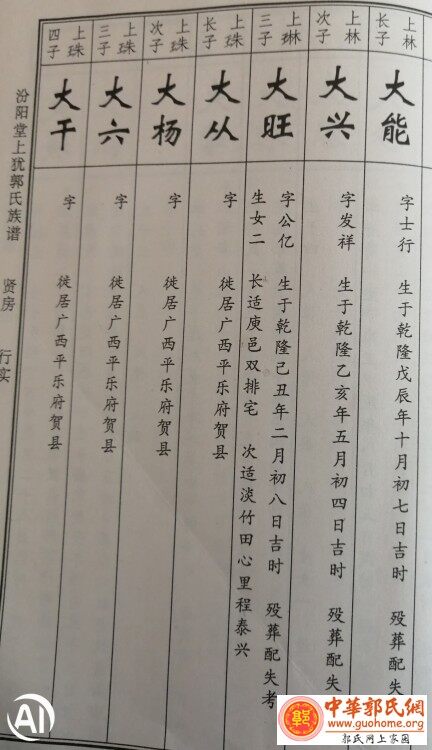 上林
长子
大能
字士行 生于乾隆戊辰年十月初七日吉时 殁葬配失
上林
次子
大兴
字发祥 生于乾隆乙亥年五月初四日吉时 殁葬配失
上琳
三子
大旺
字公亿 生于乾隆己丑年二月初八日吉时 殁葬配失考
生女二 长适庾邑双排宅 次适淡竹田心里程泰兴
上珠
长子
大从
字 徙居广西平乐府贺县
上珠
次子
大杨
字 徙居广西平乐府贺县
上珠
三子
大六
字 徙居广西平乐府贺县
上珠
四子
大干
字 徙居广西平乐府贺县
汾阳堂上犹郭氏族谱 贤房 行实
AI
中華郭氏網
www.guohome.org
郭氏网上家园